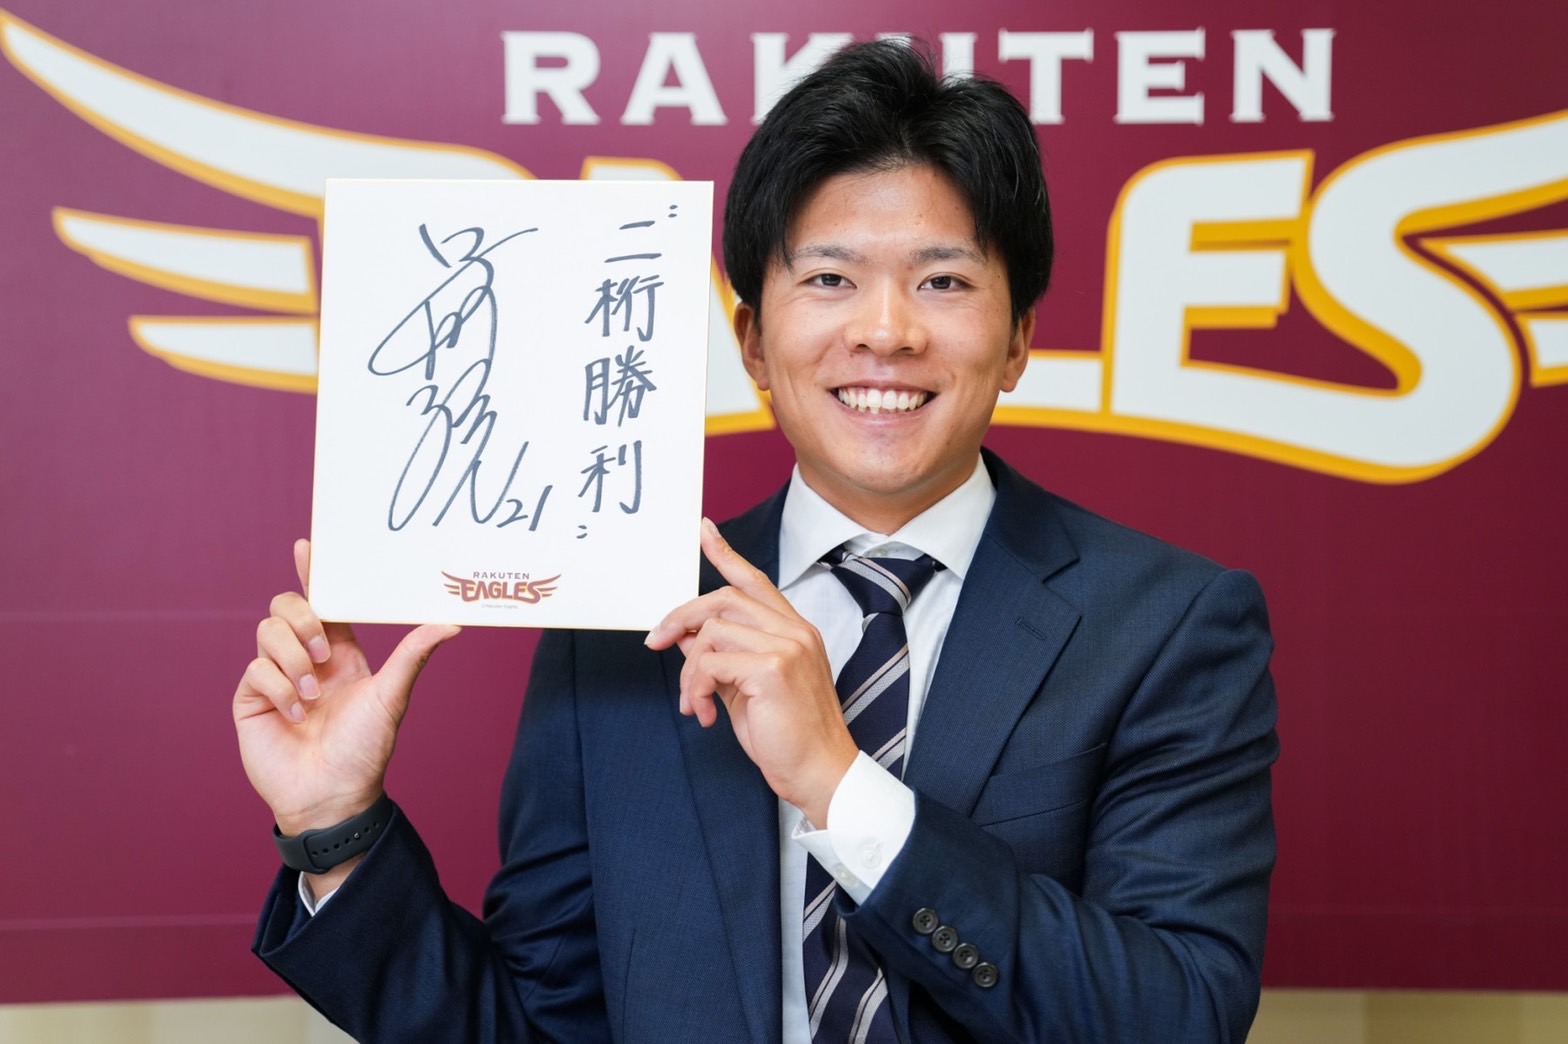 RAKUTEN
EAGLES
"二桁勝利"
21
RAKUTEN
EAGLES